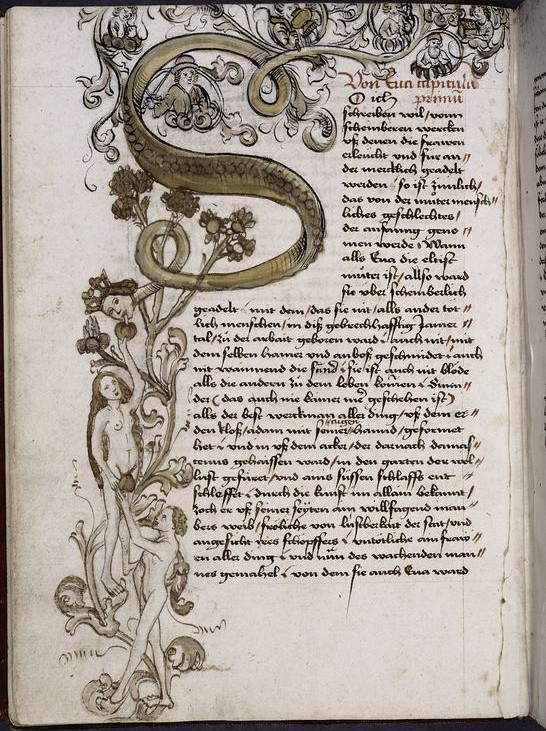 Von Eua capitulū
primū
O ich
schreiben wil / vom
schemberen wercken
vß denen die frawen
erleücht vnd für an //
der mercklich geadelt
werden / so ist zimlich /
das von der muter mensch
liches geschlechtes /
der anfanng geno //
men werde / Wann
alls Eua die eltist
muter ist / allso ward
sie vber schemberlich
geadelt / mit dem / das sie nit / alls ander tot //
lich menschen / in diß gebrechhafftig Jamer //
tal / zu der arbait geboren ward / auch nit / mit
dem selben hamer vnd anboß geschmidet / auch
nit wainnend die sünd / sie ist auch nit blöde
alls die andern zu dem leben komen / Sunn //
der ( das auch nie kainer me geschehen ist )
alls der best werckman aller ding / vß dem er //
den kloß / adam mit seiner aigen hannd / geformet
het / vnd in vß dem acker / der darnach damas //
cenus gehaissen ward / in den garten der wol //
lust gefüret / vnd ains süssen schlaffs ent //
schleffet / durch die kunst im allain bekannt /
zoch er vß seiner seyten ain willfengind man //
bers weib / frölich von lustberkait der stat / vnd
angesicht ires schöpffers / vntötlich ain fraw //
en aller ding / vnd nun des wachenden man //
nes gemahel / von dem sie auch Eua ward